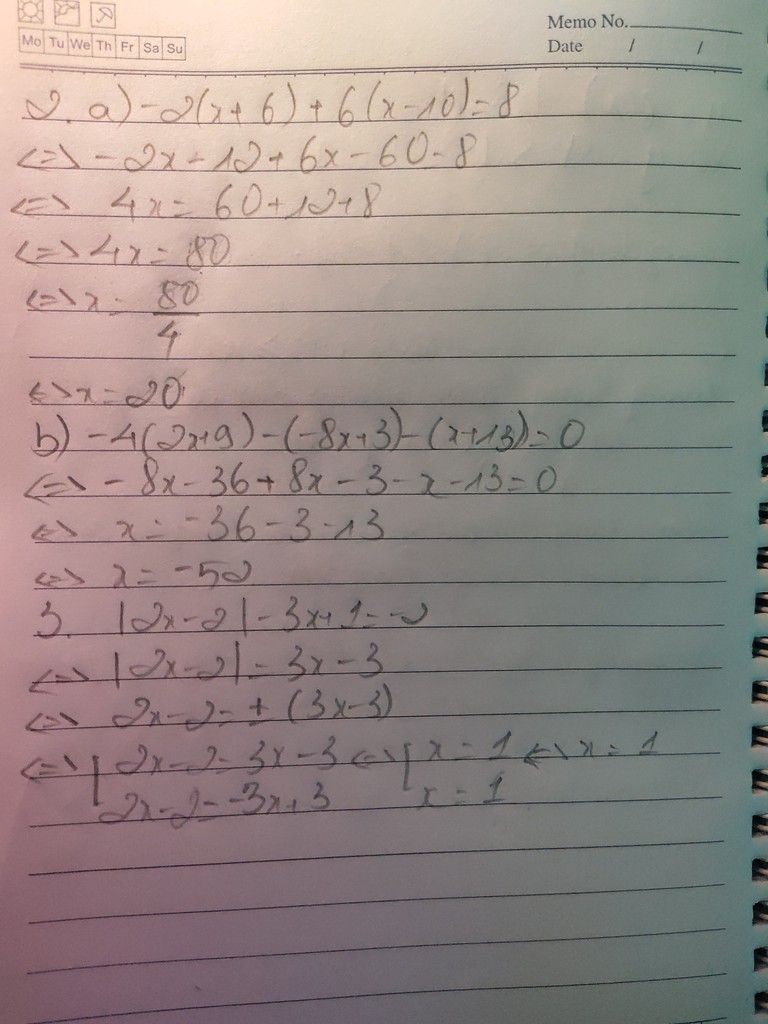 Memo No.
Mo Tu We Th Fr Sa Su
Date / /
2. a) -2(x+6)+6(x-10)=8
<=> -2x-12+6x-60=8
<=> 4x=60+12+8
<=> 4x=80
<=> x=80/4
<=> x=20
b) -4(2x+9)-(-8x+3)-(x+13)=0
<=> -8x-36+8x-3-x-13=0
<=> x=-36-3-13
<=> x=-52
3. |2x-2|-3x+1=-2
<=> |2x-2|=3x-3
<=> 2x-2=±(3x-3)
<=> [2x-2=3x-3 <=> [x=1 <=> x=1
2x-2=-3x+3 x=1